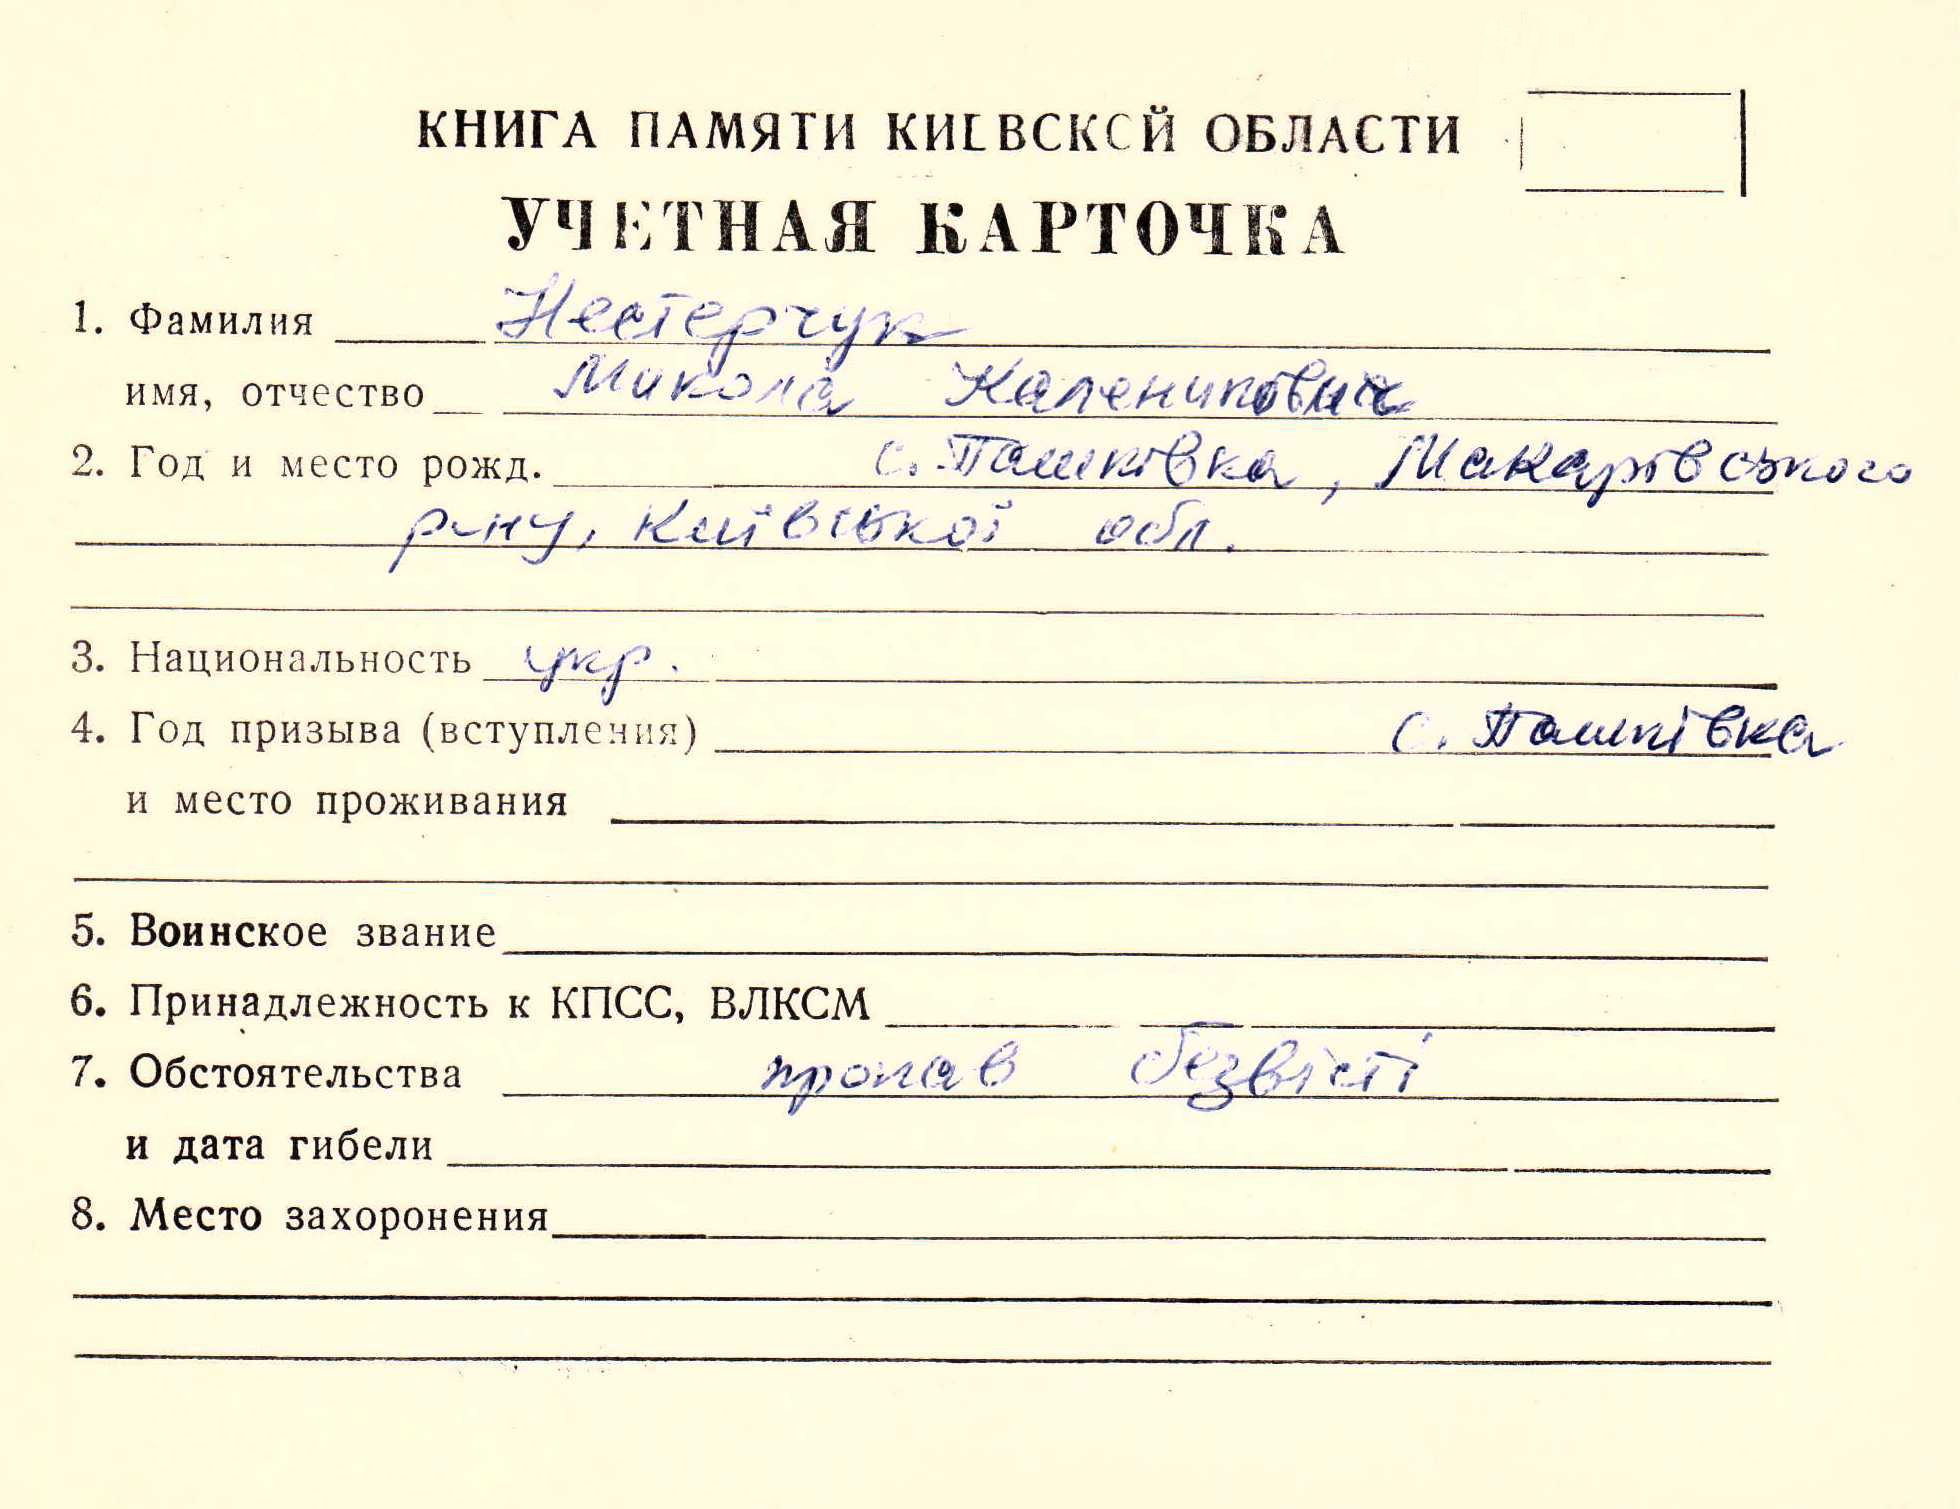 КНИГА ПАМЯТИ КИЕВСКОЙ ОБЛАСТИ
УЧЕТНАЯ КАРТОЧКА
1. Фамилия Нестерчук
имя, отчество Микола Каленикович
2. Год и место рожд. с. Пашківка, Макарівського
р-ну, Київської обл.
3. Национальность укр.
4. Год призыва (вступления) с. Пашківка
и место проживания
5. Воинское звание
6. Принадлежность к КПСС, ВЛКСМ
7. Обстоятельства пропав безвісті
и дата гибели
8. Место захоронения